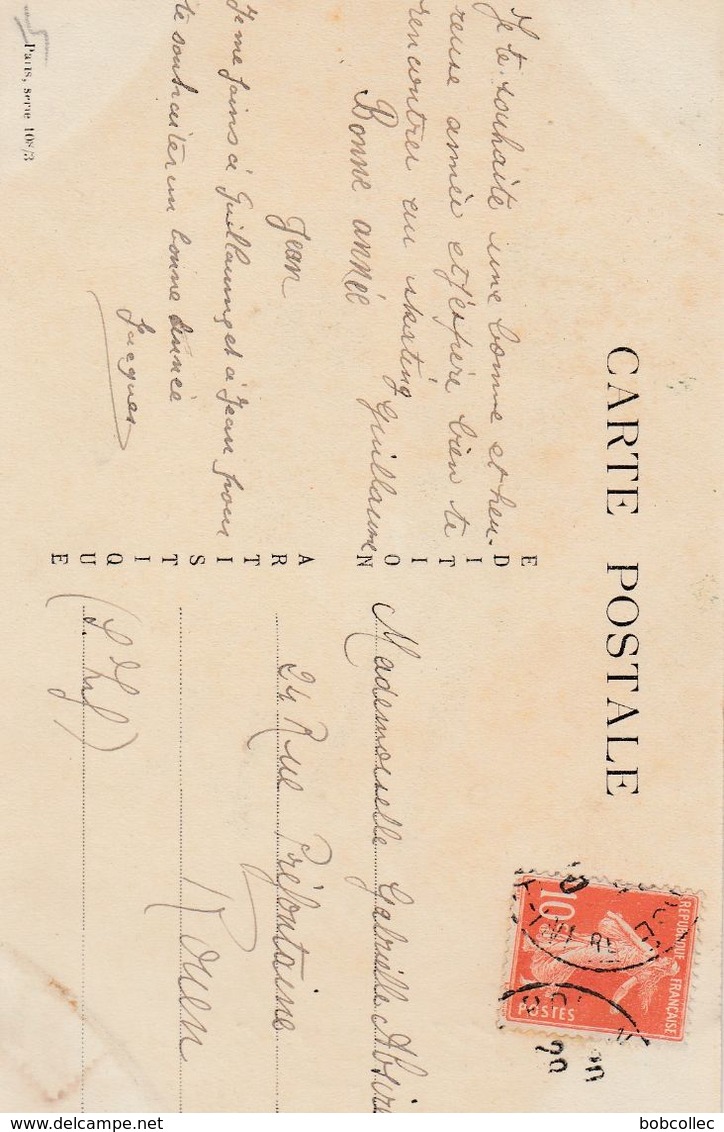 CARTE POSTALE
Je te souhaite une bonne et heu-
reuse année et j'espère bien te
rencontrer au skating
Guillaume
Bonne année
Jean
Je me joins à Guillaume et à Jean pour
te souhaiter un bonne année
Jacques
EDITION ARTISTIQUE
Paris, serie 108/3
Mademoiselle Gabrielle
24 Rue Préfontaine
Rouen
(S. Inf)
REPUBLIQUE FRANÇAISE
10
POSTES
bobcollec